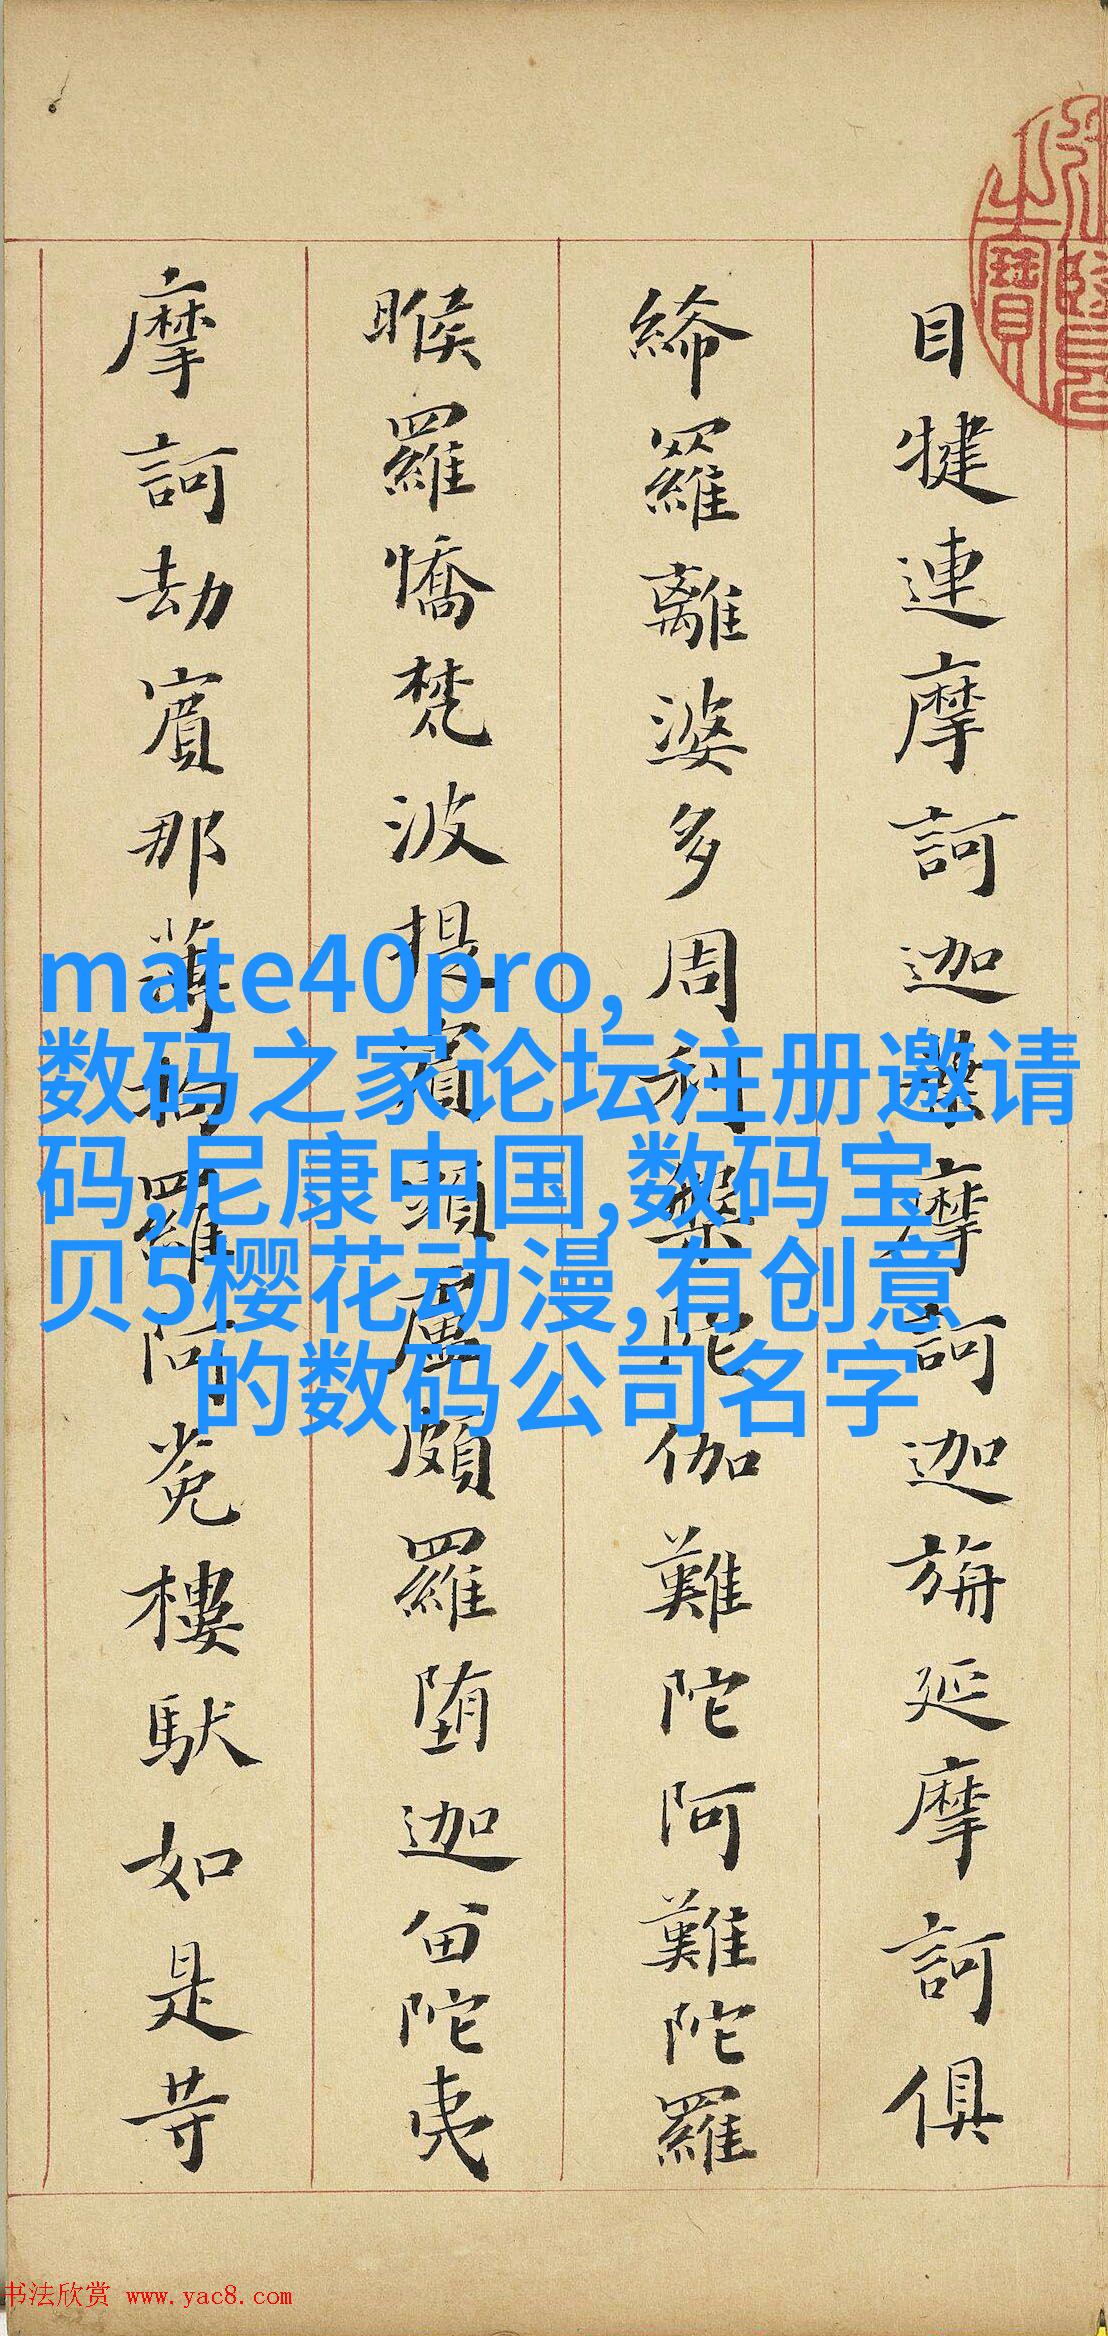 目犍連摩訶迦葉摩訶迦旃延摩訶俱
絺羅離婆多周利槃陀伽難陀阿難陀羅
睺羅憍梵波提賓頭盧頗羅堕迦留陀夷
摩訶劫賓那薄拘羅阿㝹樓馱如是等
mate40pro,
数码之家论坛注册邀请
码,尼康中国,数码宝
贝5樱花动漫,有创意
的数码公司名字
书法欣赏 www.yac8.com